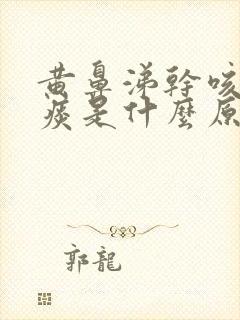 黄鼻涕幹咳
痰是什麼原
郭龍